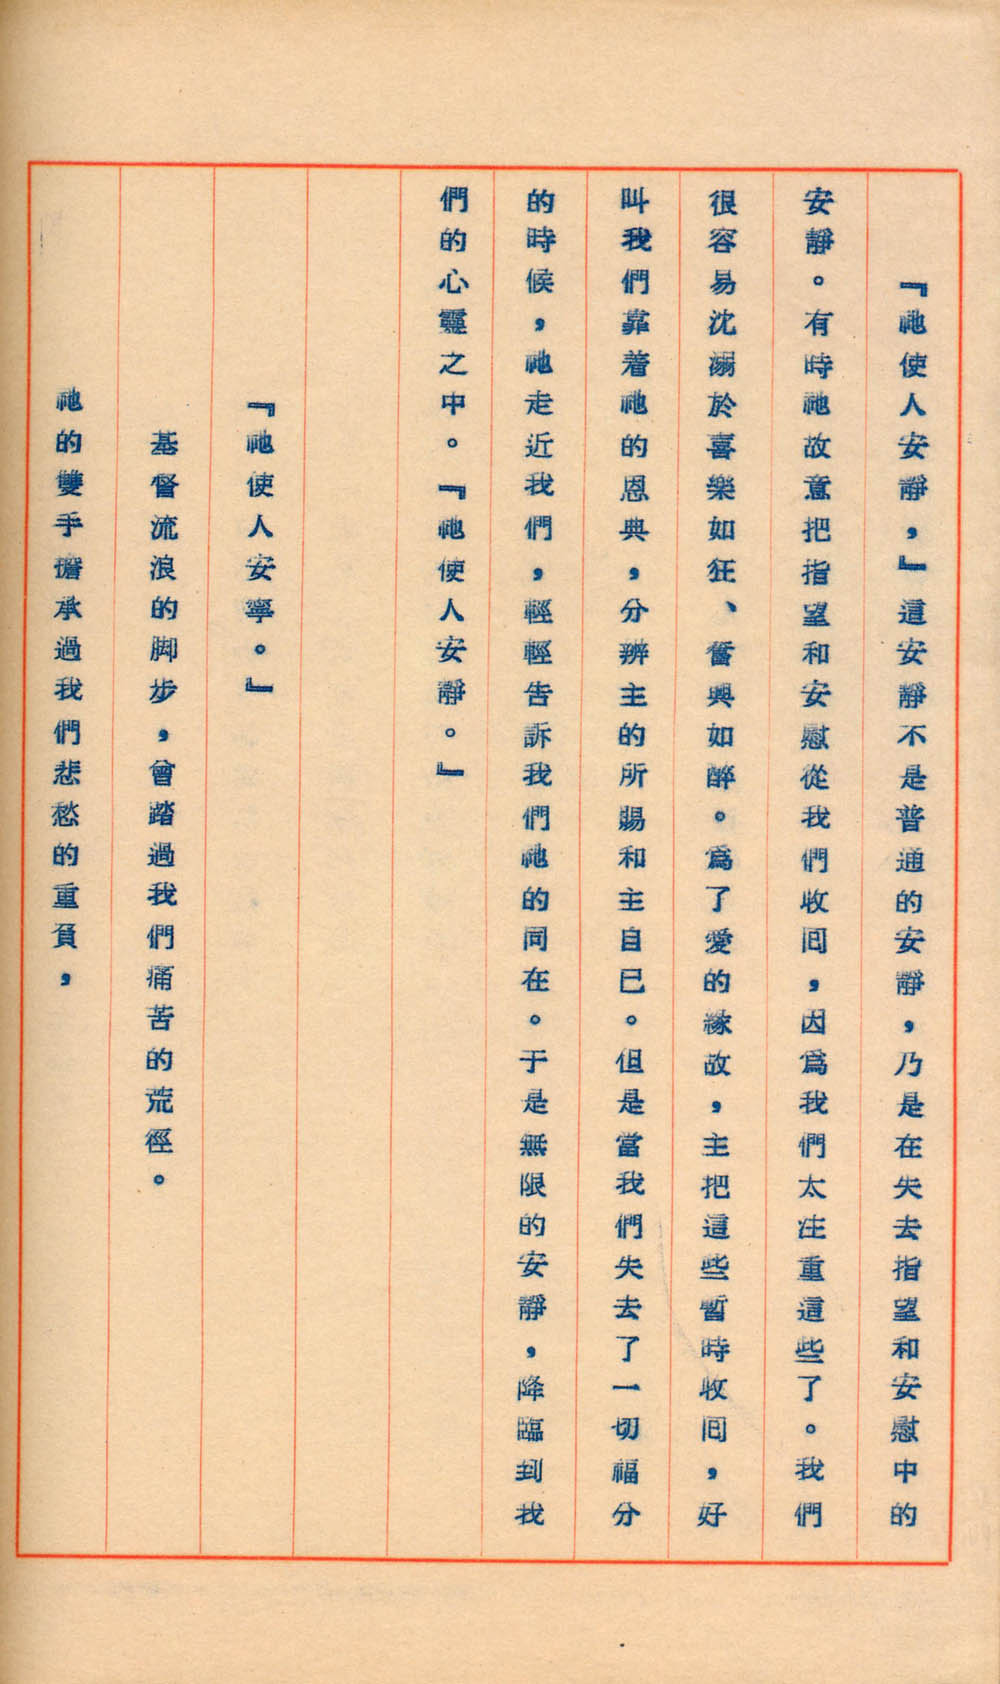 『祂使人安靜，』這安靜不是普通的安靜，乃是在失去指望和安慰中的
安靜。有時祂故意把指望和安慰從我們收囘，因爲我們太注重這些了。我們
很容易沈溺於喜樂如狂、奮興如醉。爲了愛的緣故，主把這些暫時收囘，好
叫我們靠着祂的恩典，分辨主的所賜和主自已。但是當我們失去了一切福分
的時候，祂走近我們，輕輕告訴我們祂的同在。于是無限的安靜，降臨到我
們的心靈之中。『祂使人安靜。』
『祂使人安寧。』
基督流浪的脚步，曾踏過我們痛苦的荒徑。
祂的雙手擔承過我們悲愁的重負，